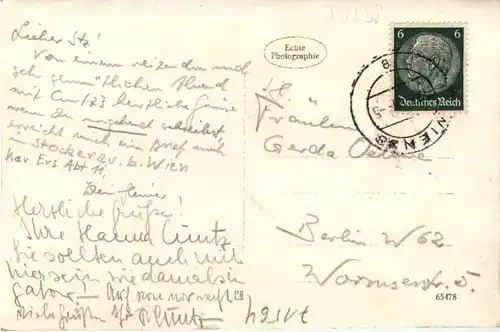 Lieber Stz!
Von einem reizenden und
sehr gemütlichen Abend
mit Cuntz herzliche Grüsse
wenn Du umgehend schreibst,
erreicht mich ein Brief noch
in Stockerau b. Wien
Kav. Ers Abt 11,
Dein Heiner!
Herzliche Grüße!
Ihre Hanna Cuntz
Sie sollten auch mit
hier sein wie damals in
Viele Grüßen Ihr
Echte
Photographie
6 6
Deutsches Reich
WIEN
Fräulein
Gerda
Berlin W 62
Wormserstr. 5
65478